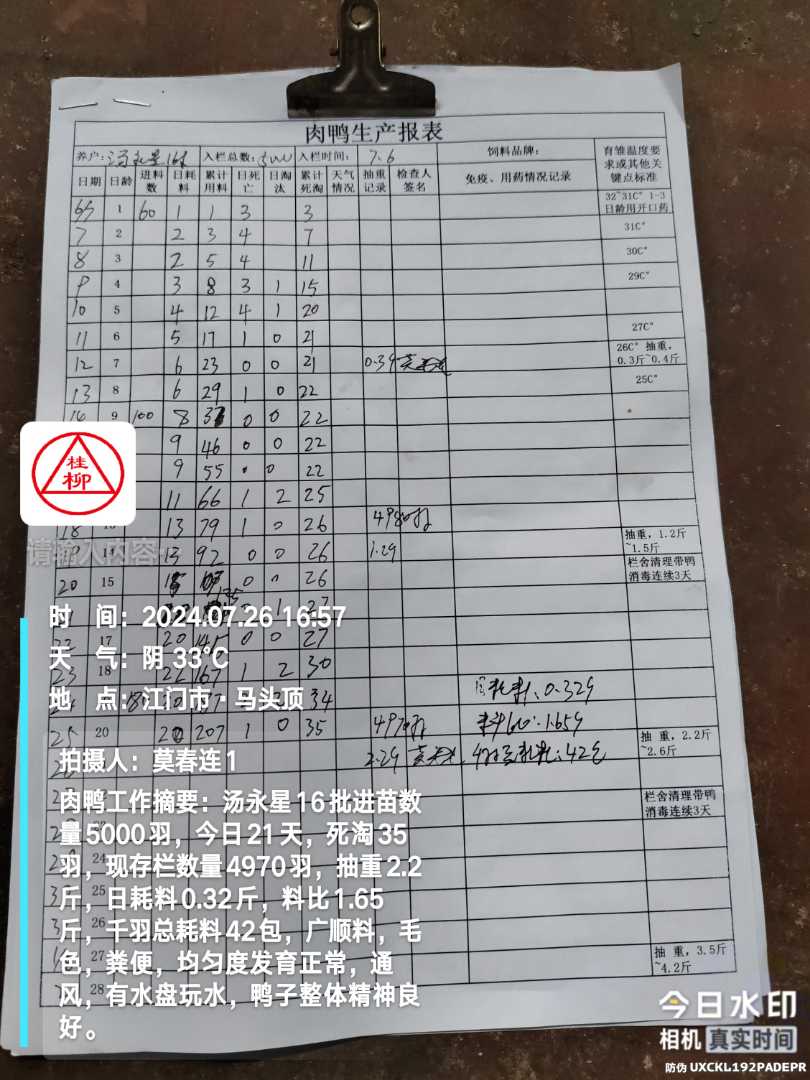 肉鸭生产报表
养户: 汤永星16批 入栏总数: 5000 入栏时间: 7.6 饲料品牌: 育雏温度要求或其他关键点标准
日期 日龄 进料数 日耗料 累计用料 日死亡 日淘汰 累计死淘 天气情况 抽重记录 检查人签名 免疫、用药情况记录
1 60 1 1 3 3 32~31C° 1-3日龄用开口药
7 2 2 3 4 7 31C°
8 3 2 5 4 11 30C°
9 4 3 8 3 1 15 29C°
10 5 4 12 4 1 20
11 6 5 17 1 0 21 27C°
12 7 6 23 0 0 21 0.39 26C° 抽重,0.3斤~0.4斤
13 8 6 29 1 0 22 25C°
14 9 100 8 0 0 22
9 46 0 0 22
9 55 0 0 22
11 66 1 2 25
18 13 79 1 0 26
13 92 0 0 26 1.29 抽重,1.2斤~1.5斤
20 15 0 0 26 栏舍清理带鸭消毒连续3天
27
22 17 20 0 0 27
23 18 22 167 1 2 30
34 日耗料:0.329
25 20 20 207 1 0 35 497 料比:1.659
2.29 42包 抽重,2.2斤~2.6斤
栏舍清理带鸭消毒连续3天
24
25
26
27 抽重,3.5斤~4.2斤
28
桂柳
请输入内容
时 间: 2024.07.26 16:57
天 气: 阴 33℃
地 点: 江门市·马头顶
拍摄人: 莫春连1
肉鸭工作摘要: 汤永星16批进苗数
量5000羽，今日21天，死淘35
羽，现存栏数量4970羽，抽重2.2
斤，日耗料0.32斤，料比1.65
斤，千羽总耗料42包，广顺料，毛
色，粪便，均匀度发育正常，通
风，有水盘玩水，鸭子整体精神良
好。
今日水印
相机 真实时间
防伪 UXCKL192PADEPR